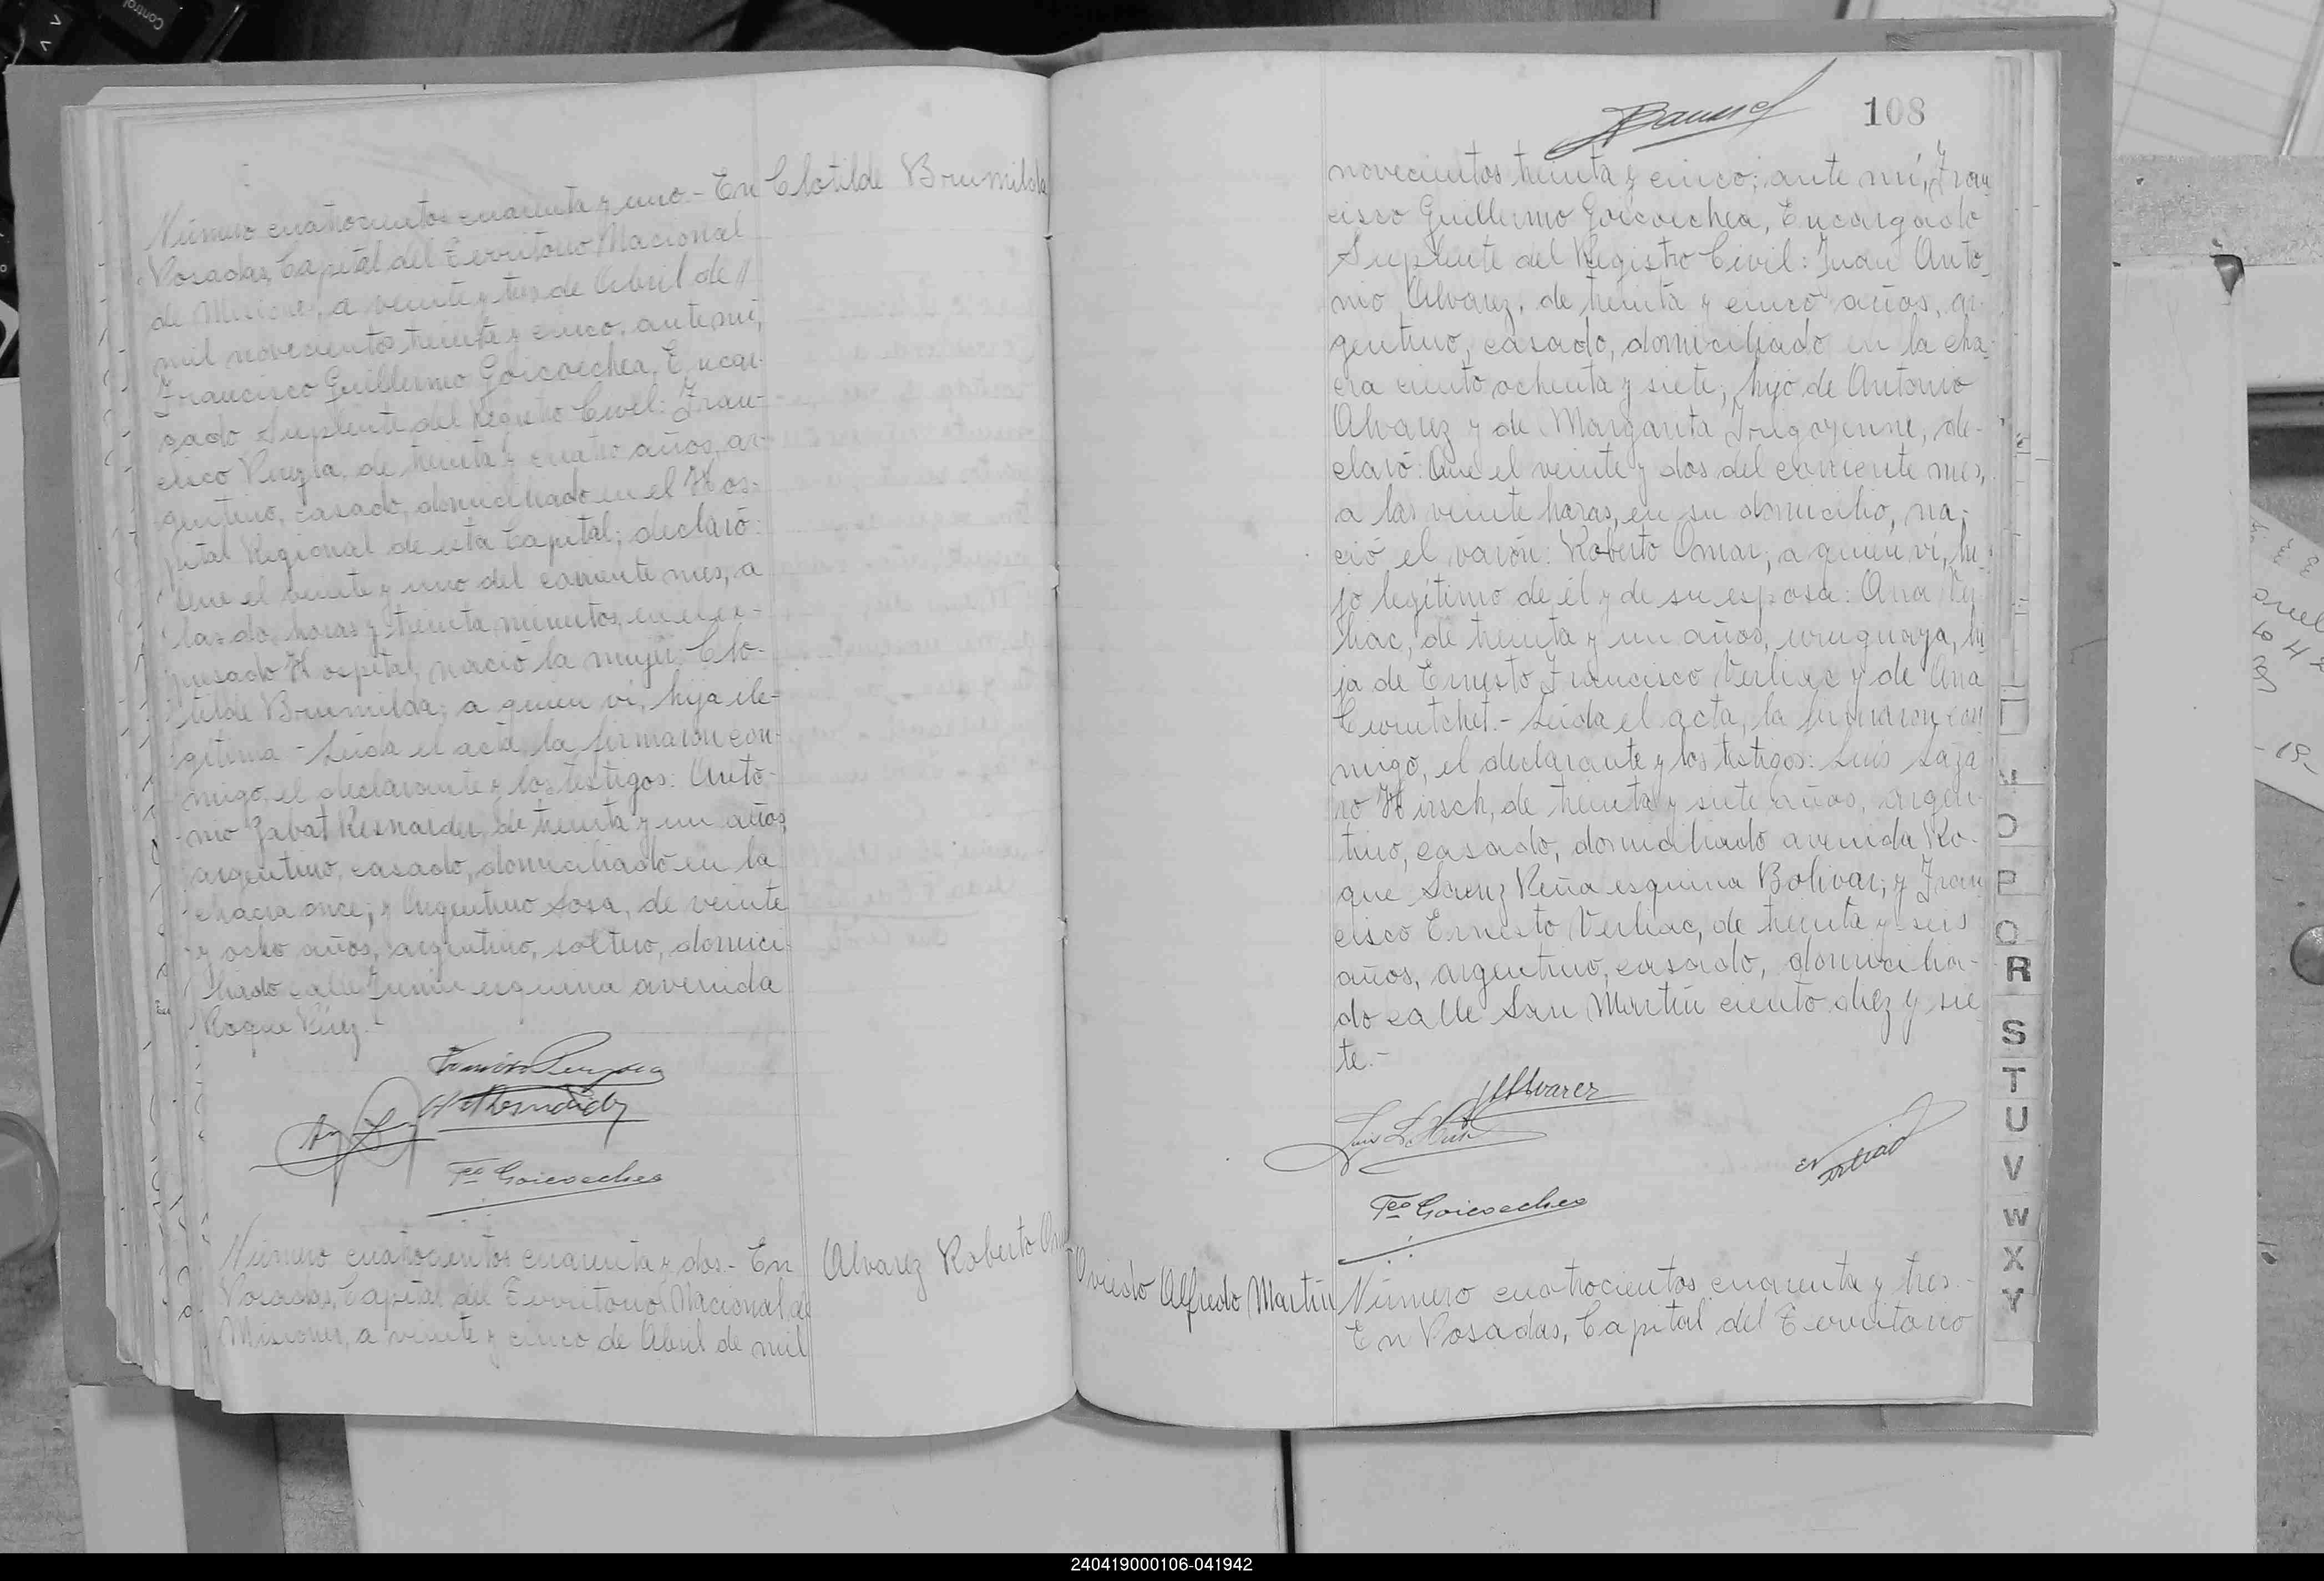 Número cuatrocientos cuarenta y uno.- En
Clotilde Brumilda
Posadas, Capital del Territorio Nacional
de Misiones, a veinte y tres de Abril de //
mil novecientos treinta y cinco, ante mí,
Francisco Guillermo Goicoechea, Encar-
gado Suplente del Registro Civil: Fran-
cisco de treinta y cuatro años, ar-
gentino, casado, domiciliado en el Hos-
pital Regional de esta Capital; declaró:
Que el veinte y uno del corriente mes, a
las dos horas y treinta minutos, en el ex-
presado Hospital, nació la mujer: Clo-
tilde Brumilda; a quien ví, hija ile-
gítima.- Leída el acta, la firmaron con-
migo, el declarante y los testigos: Anto-
nio Zabat de treinta y un años,
argentino, casado, domiciliado en la
chacra once; y Argentino Sosa, de veinte
y ocho años, argentino, soltero, domici-
liado calle Junín esquina avenida
Roque Pérez.-
Fco Goicoechea
Número cuatrocientos cuarenta y dos.- En
Alvarez Roberto Omar
Posadas, Capital del Territorio Nacional de
Misiones, a veinte y cinco de Abril de mil
108
novecientos treinta y cinco; ante mí, Fran
cisco Guillermo Goicoechea, Encargado
Suplente del Registro Civil: Juan Anto-
nio Alvarez, de treinta y cinco años, ar-
gentino, casado, domiciliado en la cha-
cra ciento ochenta y siete, hijo de Antonio
Alvarez y de Margarita Irigoyenne, de-
claró: Que el veinte y dos del corriente mes,
a las veinte horas, en su domicilio, na-
ció el varón: Roberto Omar; a quien ví, hi-
jo legítimo de él y de su esposa: Ana Ver
liac, de treinta y un años, uruguaya, hi
ja de Ernesto Francisco Verliac y de Ana
Curutchet.- Leída el acta, la firmaron con
migo, el declarante y los testigos: Luis Laza
ro Hirsch, de treinta y siete años, argen-
tino, casado, domiciliado avenida Ro-
que Saenz Peña esquina Bolivar; y Fran
cisco Ernesto Verliac, de treinta y seis
años, argentino, casado, domicilia-
do calle San Martín ciento diez y sie
te.-
JAAlvarez
Luis L. Hirsch
E Verliac
Fco Goicoechea
Oviedo Alfredo Martín
Número cuatrocientos cuarenta y tres.-
En Posadas, Capital del Territorio
O
P
Q
R
S
T
U
V
W
X
Y
Control
240419000106-041942